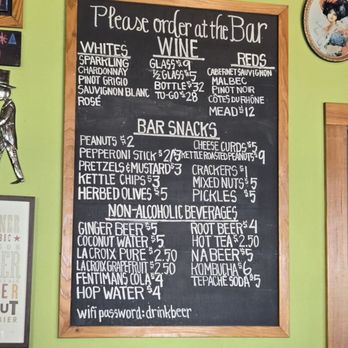 Please order at the Bar
WINE
WHITES
SPARKLING
CHARDONNAY
PINOT GRIGIO
SAUVIGNON BLANC
ROSÉ
GLASS $9
½ GLASS $5
BOTTLE $32
TO-GO $28
REDS
CABERNET SAUVIGNON
MALBEC
PINOT NOIR
CÔTES DU RHÔNE
MEAD $12
BAR SNACKS
PEANUTS $2
PEPPERONI STICK $2/3
PRETZELS & MUSTARD $3
KETTLE CHIPS $3
HERBED OLIVES $5
CHEESE CURDS $5
KETTLE ROASTED PEANUTS $9
CRACKERS $1
MIXED NUTS $5
PICKLES $5
NON-ALCOHOLIC BEVERAGES
GINGER BEER $5
COCONUT WATER $5
LA CROIX PURE $2.50
LA CROIX GRAPEFRUIT $2.50
FENTIMANS COLA $4
HOP WATER $4
ROOT BEER $4
HOT TEA $2.50
NA BEER $5
KOMBUCHA $6
TEPACHE SODA $5
wifi password: drinkbeer